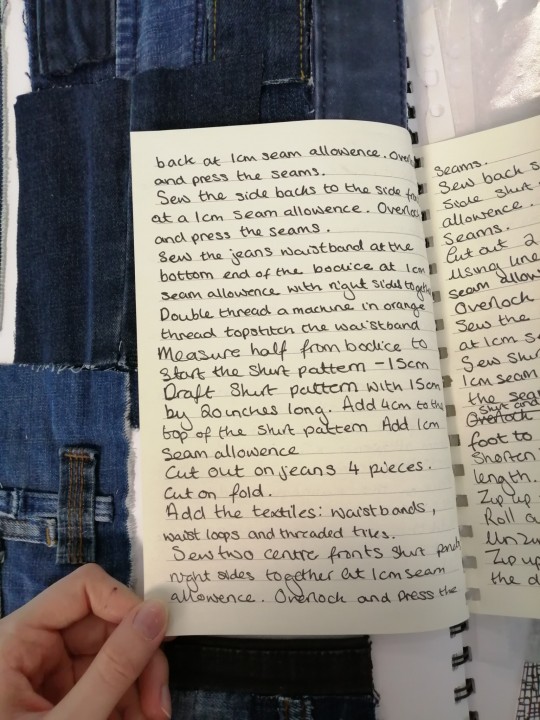 back at 1cm seam allowence. Over
and press the seams.
Sew the side backs to the side
at a 1cm seam allowence. Overlock
and press the seams.
Sew the jeans waistband at the
bottom end of the bodice at 1cm
seam allowence with right sides together
Double thread a machine in orange
thread topstitch the waistband
Measure half from bodice to
start the skirt pattern - 15cm
Draft Skirt pattern with 15cm
by 20 inches long. Add 4cm to the
top of the skirt pattern Add 1cm
seam allowence
Cut out on jeans 4 pieces.
Cut on fold.
Add the textiles: waistbands,
waist loops and threaded tries.
Sew two centre fronts skirt
right sides together at 1cm seam
allowence. Overlock and press the
Seams.
Sew back s
Side skirt
allowence.
Seams.
Cut out 2
Using
seam allow
Overlock
Sew the
at 1cm s
Sew skir
1cm seam
the sea
skirt and
Overlock
foot to
Shorten
length.
Zip up
Roll a
Unzip
Zip up
the d